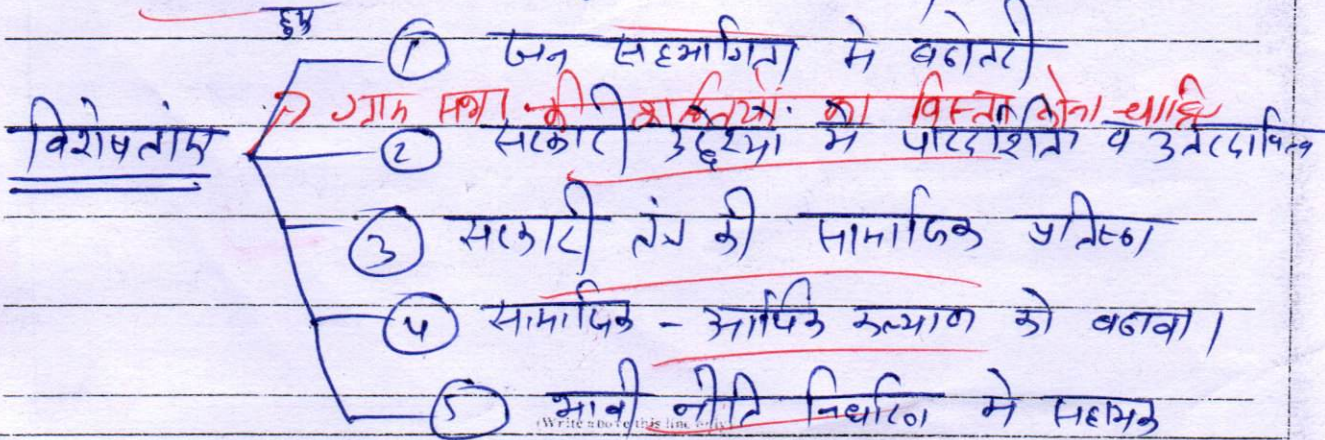 हेतु
① जन सहभागिता मे बढोतरी
→ ग्राम सभा की शक्तियों का विस्तार होना चाहिए
विशेषताएं
② सरकारी उद्देश्यो मे पारदर्शिता व उत्तरदायित्व
③ सरकारी तंत्र की सामाजिक प्रतिष्ठा
④ सामाजिक - आर्थिक कल्याण को बढावा।
⑤ भावी नीति निर्धारण मे सहायक
(Write above this line only)